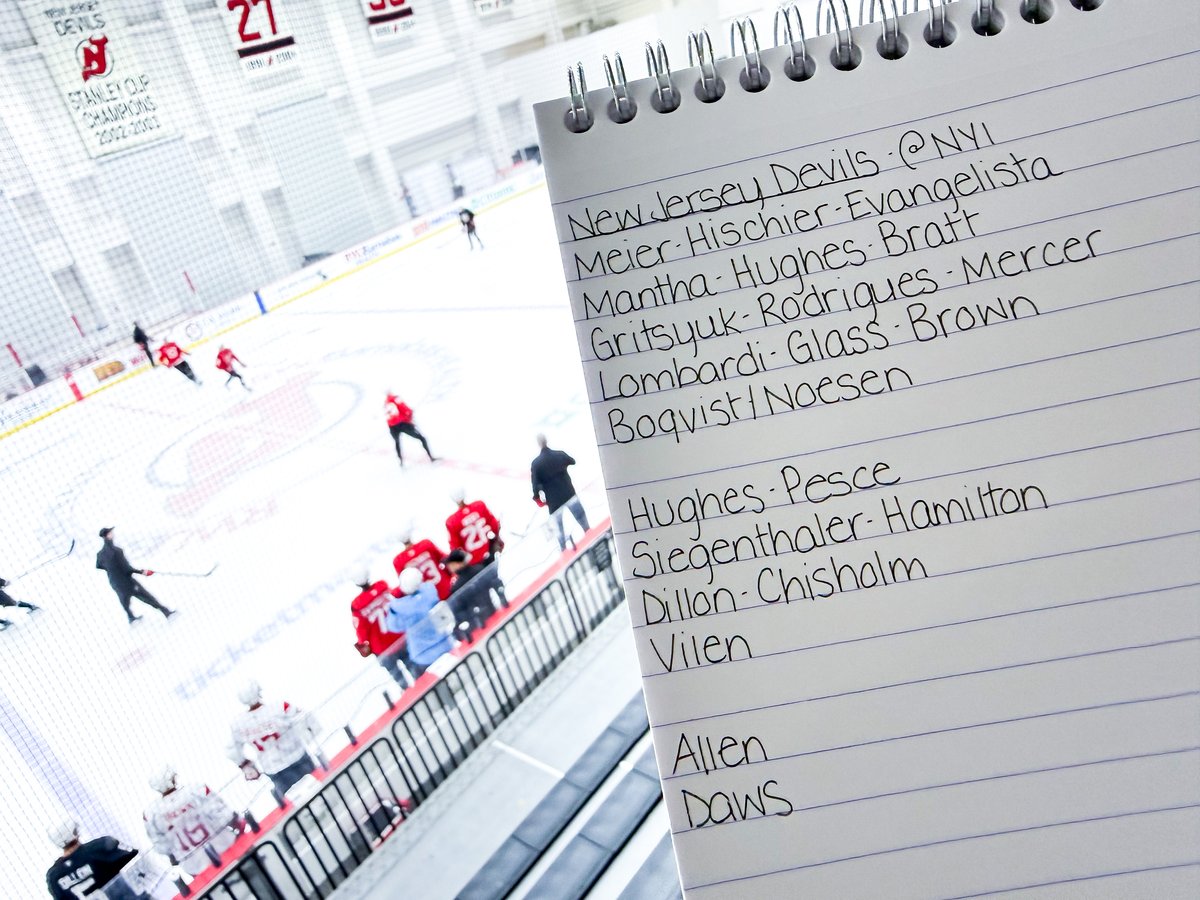 NEW JERSEY
DEVILS
STANLEY CUP
CHAMPIONS
2002-2003
27
New Jersey Devils - @NYI
Meier - Hischier - Evangelista
Mantha - Hughes - Bratt
Gritsyuk - Rodrigues - Mercer
Lombardi - Glass - Brown
Boqvist / Noesen
Hughes - Pesce
Siegenthaler - Hamilton
Dillon - Chisholm
Vilen
Allen
Daws
26
16
DILLON